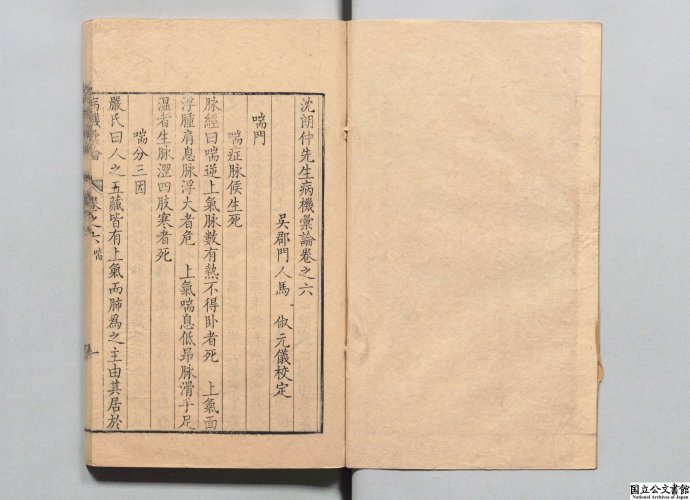 沈朗仲先生病機彙論卷之六
吳郡門人馬 俶元儀校定
喘門
喘症脉候生死
脉經曰喘逆上氣脉數有熱不得卧者死 上氣面
浮腫肩息脉浮大者危 上氣喘息低昻脉滑手足
温者生脉澀四肢寒者死
喘分三因
嚴氏曰人之五藏皆有上氣而肺爲之主由其居於
病機彙論 卷之六 喘 一
国立公文書館
National Archives of Japan